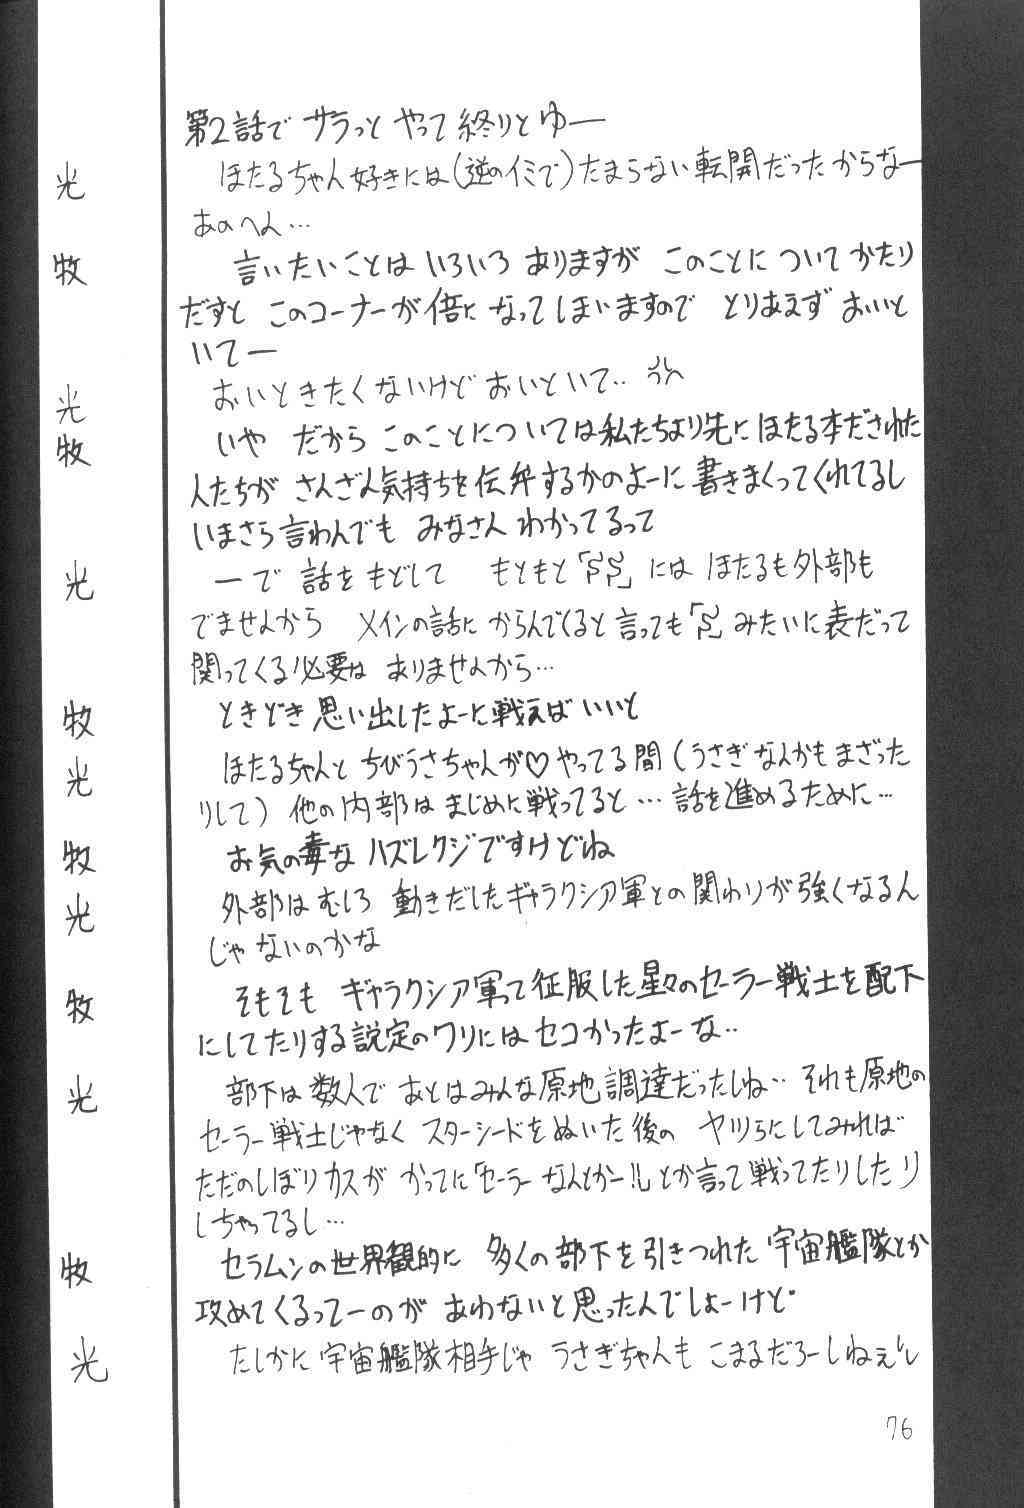 第2話で サラっと やって 終りとゆー
光 ほたるちゃん好きには(逆のイミで)たまらない転開だったからなー
あのへん…
牧 言いたいことは いろいろ ありますが このことに ついて かたり
だすと このコーナーが倍に なってしまいますので とりあえず おいと
いてー
光 おいときたくないけど おいといて‥ うん
牧 いや だから このことについては私たちより先に ほたる本だされた
人たちが さんざん気持ちを伝弁するかのよーに 書きまくってくれてるし
いまさら言わんでも みなさん わかってるって
光 ーで 話を もどして もともと「SS」には ほたるも外部も
でませんから メインの話に からんでくると言っても「S」みたいに表だって
関ってくる必要は ありませんから…
牧 ときどき思い出したよーに戦えば いいと
光 ほたるちゃんと ちびうさちゃんが♡やってる間(うさぎなんかもまざった
りして) 他の内部は まじめに戦ってると… 話を進めるために…
牧 お気の毒な ハズレクジですけどね
光 外部は むしろ 動きだしたギャラクシア軍との関わりが強くなるん
じゃないのかな
牧 そもそも ギャラクシア軍って征服した星々のセーラー戦士を配下
にしてたりする説定のワリには セコかったよーな‥
光 部下は 数人で あとはみんな原地調達だったしね‥ それも原地の
セーラー戦士じゃなく スターシードをぬいた後の ヤツらにしてみれば
ただのしぼりカスが かってに「セーラーなんとかー!!」とか言って戦ってたりしたり
しちゃってるし…
牧 セラムンの世界観的に 多くの部下を引きつれた 宇宙艦隊とか
攻めてくるってーのが あわないと思ったんでしょーけど
光 たしかに 宇宙艦隊相手じゃ うさぎちゃんも こまるだろーしねぇ
76